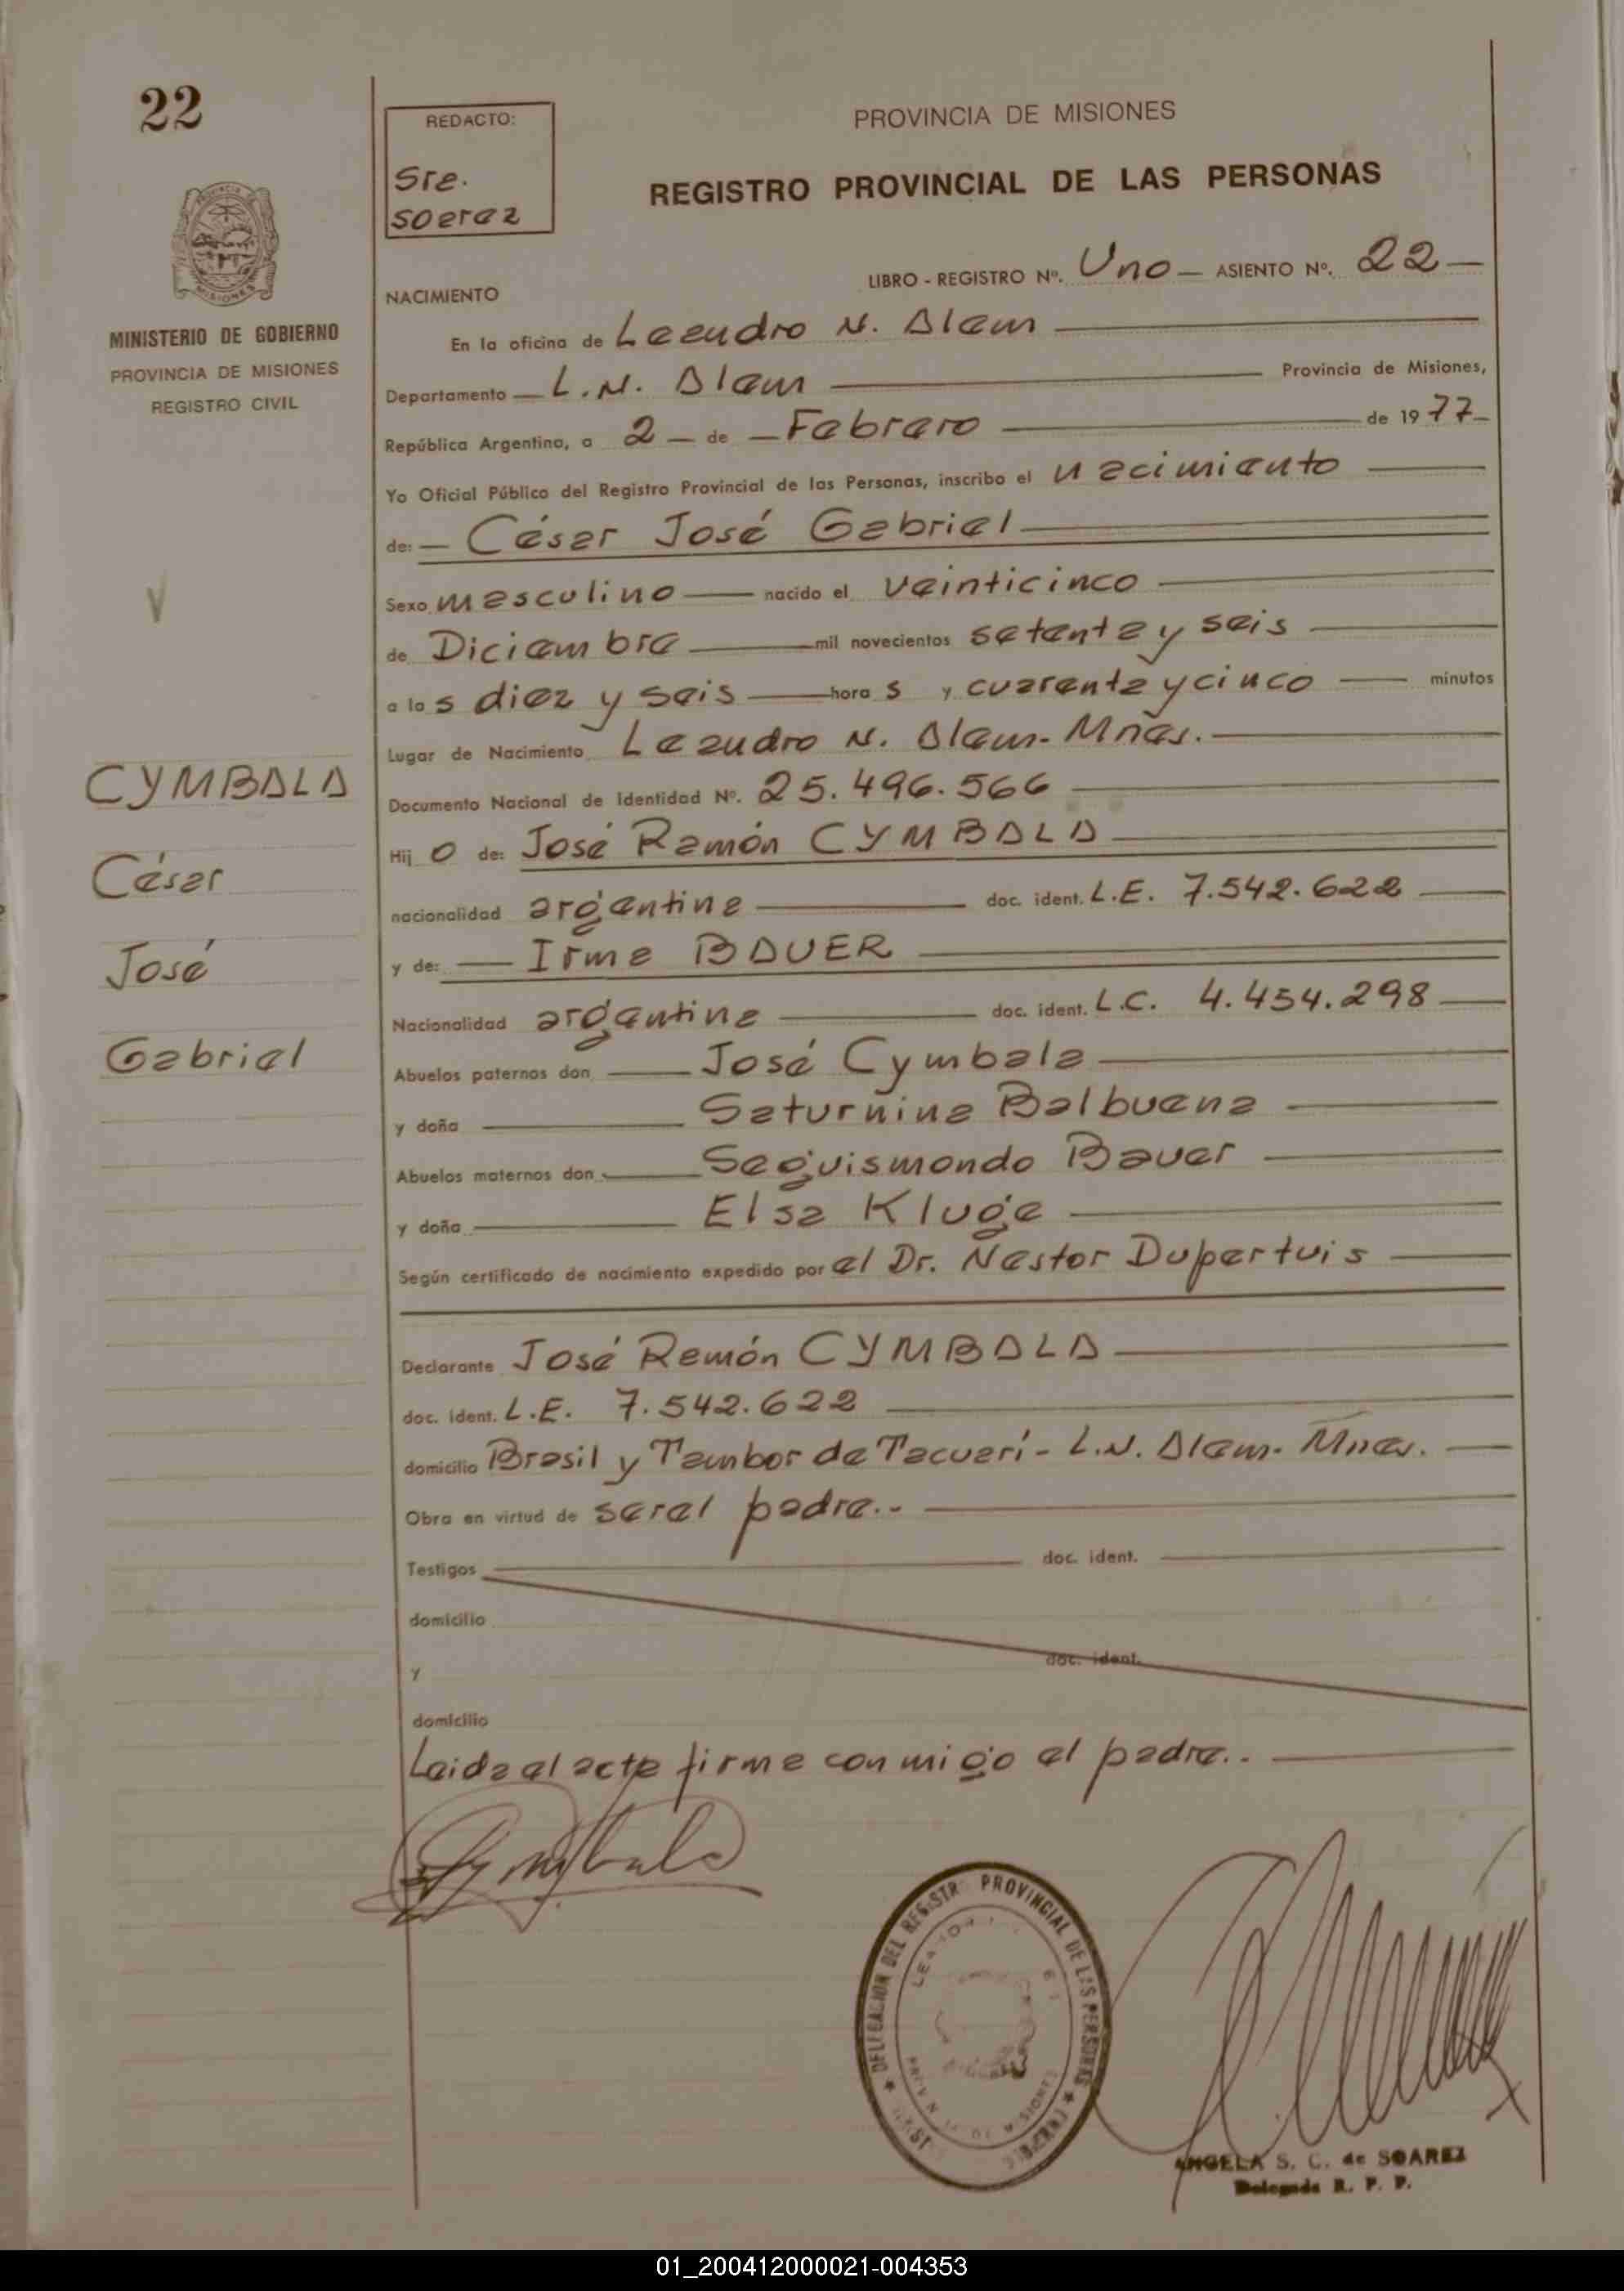 22
REDACTO:
Sra.
Soarez
PROVINCIA DE MISIONES
REGISTRO PROVINCIAL DE LAS PERSONAS
MINISTERIO DE GOBIERNO
PROVINCIA DE MISIONES
REGISTRO CIVIL
LIBRO - REGISTRO Nº. Uno — ASIENTO Nº. 22 —
NACIMIENTO
En la oficina de Leandro N. Alem
Departamento — L. N. Alem — Provincia de Misiones,
República Argentina, a 2 — de — Febrero — de 1977 —
Yo Oficial Público del Registro Provincial de las Personas, inscribo el nacimiento
de: — César José Gabriel
Sexo masculino — nacido el veinticinco
de Diciembre — mil novecientos setenta y seis
a las diez y seis — horas y cuarenta y cinco — minutos
Lugar de Nacimiento Leandro N. Alem - Mnes.
Documento Nacional de Identidad Nº. 25.496.566
Hijo de: José Ramón CYMBALA
nacionalidad argentina — doc. ident. L.E. 7.542.622
y de: — Irma BAUER
Nacionalidad argentina — doc. ident. L.C. 4.454.298
Abuelos paternos don — José Cymbala
y doña — Saturnina Balbuena
Abuelos maternos don — Seguismondo Bauer
y doña — Elsa Kluge
Según certificado de nacimiento expedido por el Dr. Nestor Dupertuis
CYMBALA
César
José
Gabriel
Declarante José Ramón CYMBALA
doc. ident. L.E. 7.542.622
domicilio Brasil y Tambor de Tacuarí - L.N. Alem - Mnes.
Obra en virtud de ser el padre.-
Testigos — doc. ident.
domicilio
y doc. ident.
domicilio
Leida el acta firma conmigo el padre..
Cymbala
DELEGACION DEL REGISTRO PROVINCIAL DE LAS PERSONAS
ANGELA S. C. de SOAREZ
Delegada R. P. P.
01_200412000021-004353